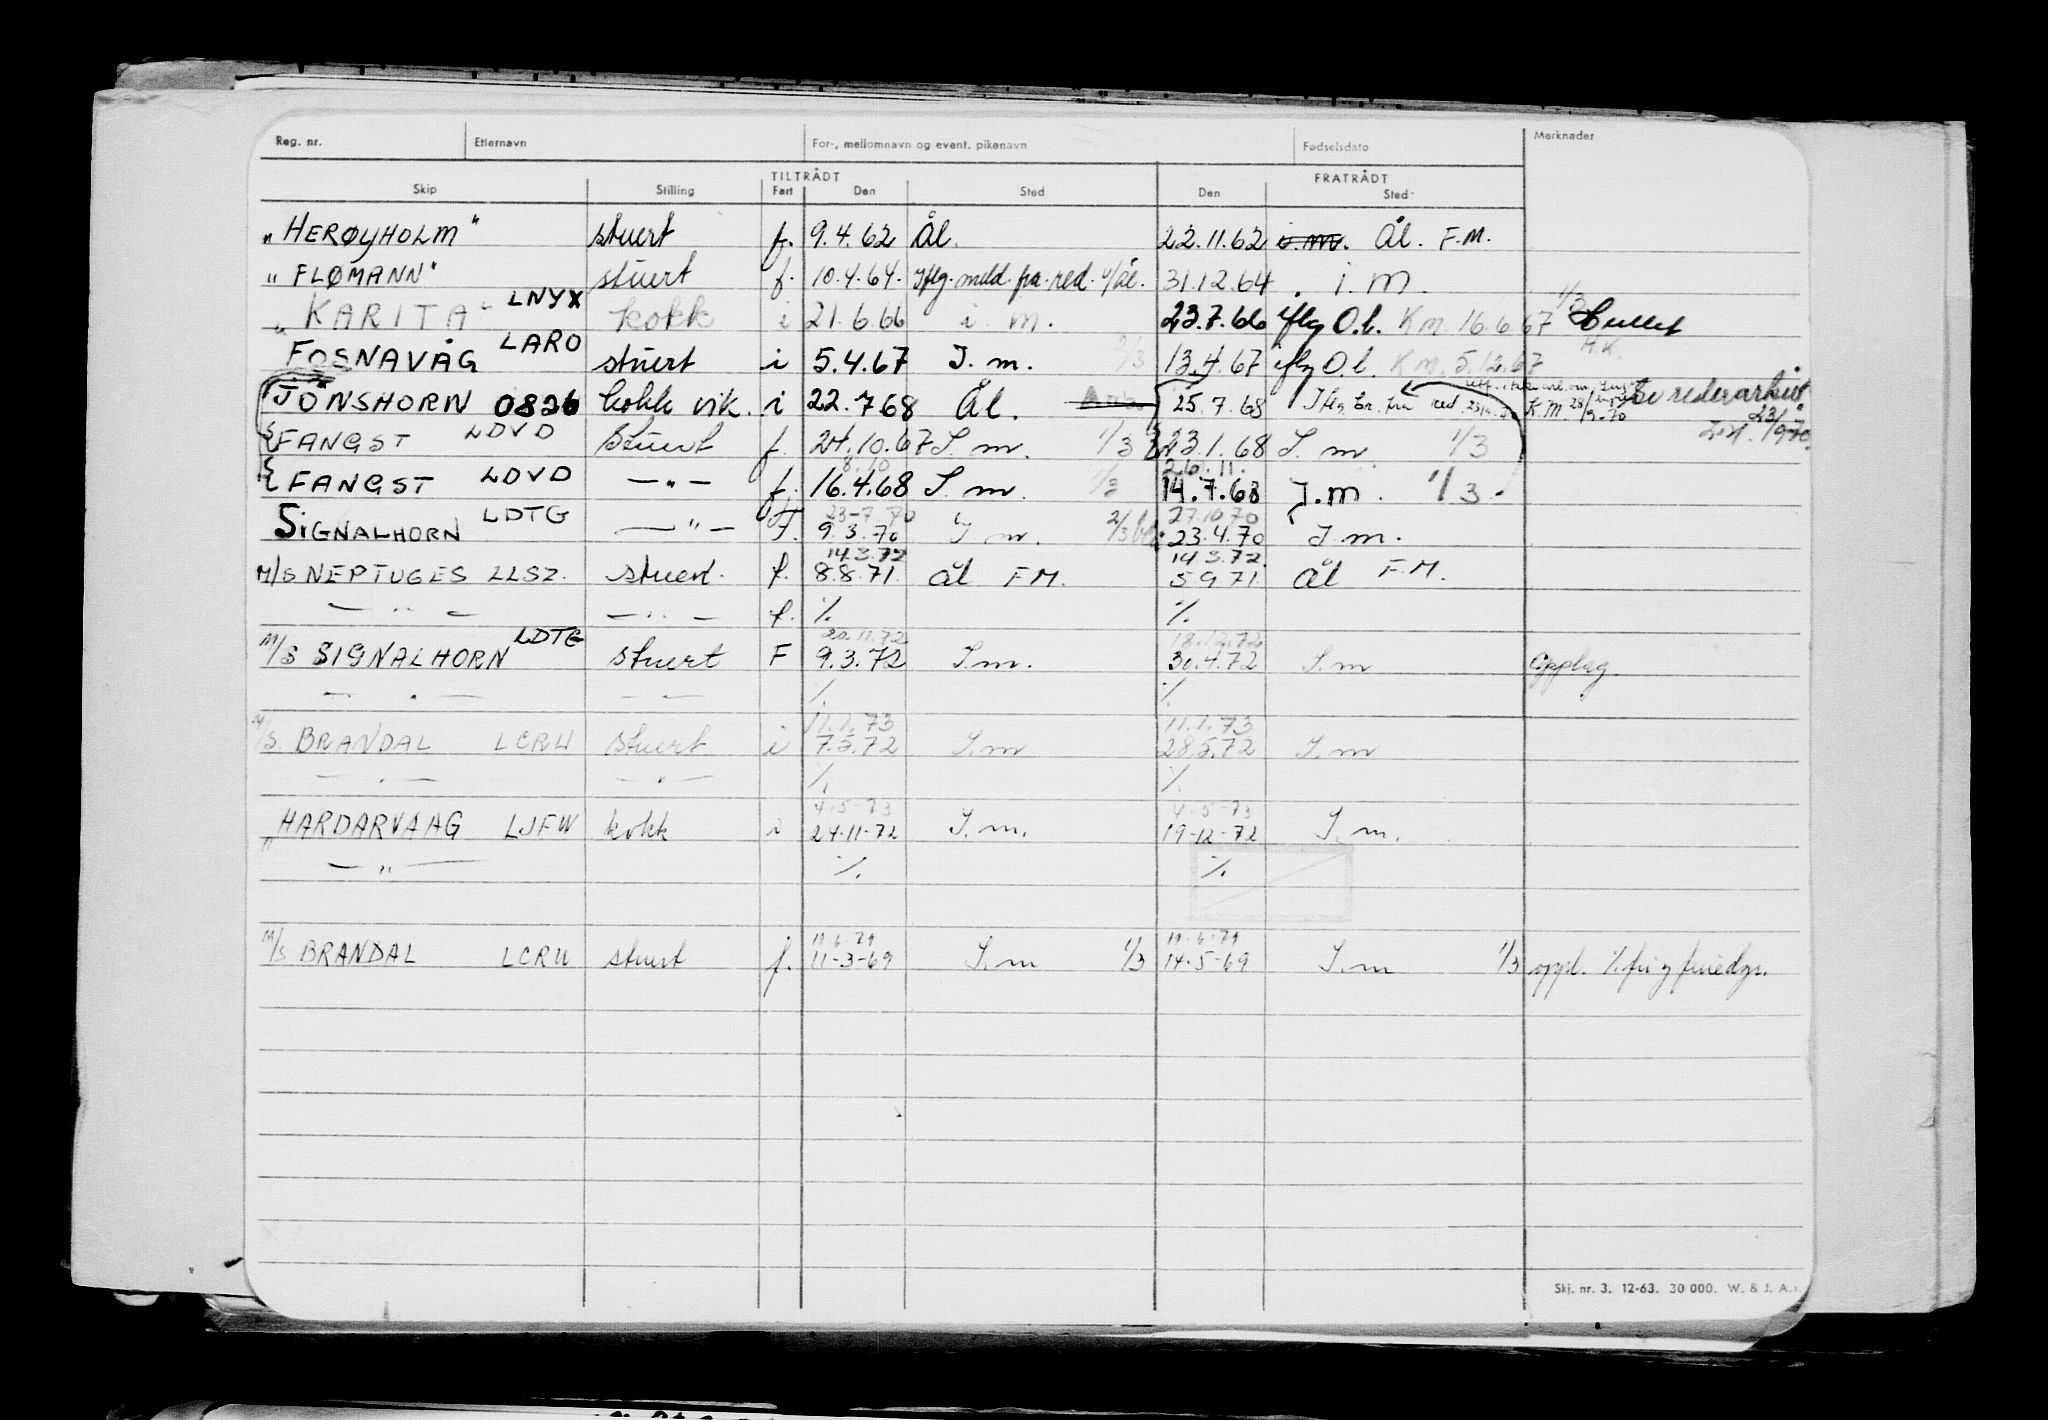 Reg. nr. Etternavn For-, mellomnavn og event. pikenavn Fødselsdato Merknader
TILTRÅDT FRATRÅDT
Skip Stilling Fart Den Sted Den Sted
„HERØYHOLM" stuert f. 9.4.62 Ål. 22.11.62 i.m. Ål. F.M.
"FLØMANN" stuert f. 10.4.64. Iflg. meld. fra red. Ål. 31.12.64 i m.
"KARITA" LNYX kokk i 21.6.66 i m. 23.7.66 iflg O.l. K.m. 16.6.67 1/3
FOSNAVÅG LARO stuert i 5.4.67 I. m. 2/3 13.4.67 iflg O.l. K.m. 5.12.67 H.K.
JONSHORN 0826 kokk vik. i 22.7.68 Ål. 25.7.68 Iflg. br. fra red. K.M. 28/9.70 Se rederarkiv 23/9 70
FANGST LDVD Stuert f. 24.10.67 I. m. 1/3 23.1.68 I. m. 1/3
8.10 26.11.
FANGST LDVD —"— f. 16.4.68 I. m. 1/3 14.7.68 I.m. 1/3
23-7 70 27.10 70
SIGNALHORN LDTG —"— f. 9.3.70 I m. 2/3 23.4.70 I.m.
14.3.72 14.3.72
M/S NEPTUGES LLSZ. stuert. f. 8.8.71. Ål F.M. 5 9 71 Ål F.M.
—"— —"— f. %. %.
20.11.72 18.12.72
M/S SIGNALHORN LDTG stuert F 9.3.72 I.m. 30.4.72 I.m Opplag.
—"— — — %. %.
11.1.73 11.1.73
M/S. BRANDAL LCRU stuert i 7.5.72 I.m 28.5.72 I.m
—"— —"— %. %.
4-5-73 4-5-73
"HARDARVAAG LJFW kokk i 24-11-72 I.m. 19-12-72 I.m.
—"— %. %.
M/S BRANDAL LCRU stuert f. 11-3-69 I.m 1/3 14-5-69 I.m 1/3 oppl. %. fri og feriedgr.
Skj. nr. 3. 12-63. 30 000. W. & J. A.s.